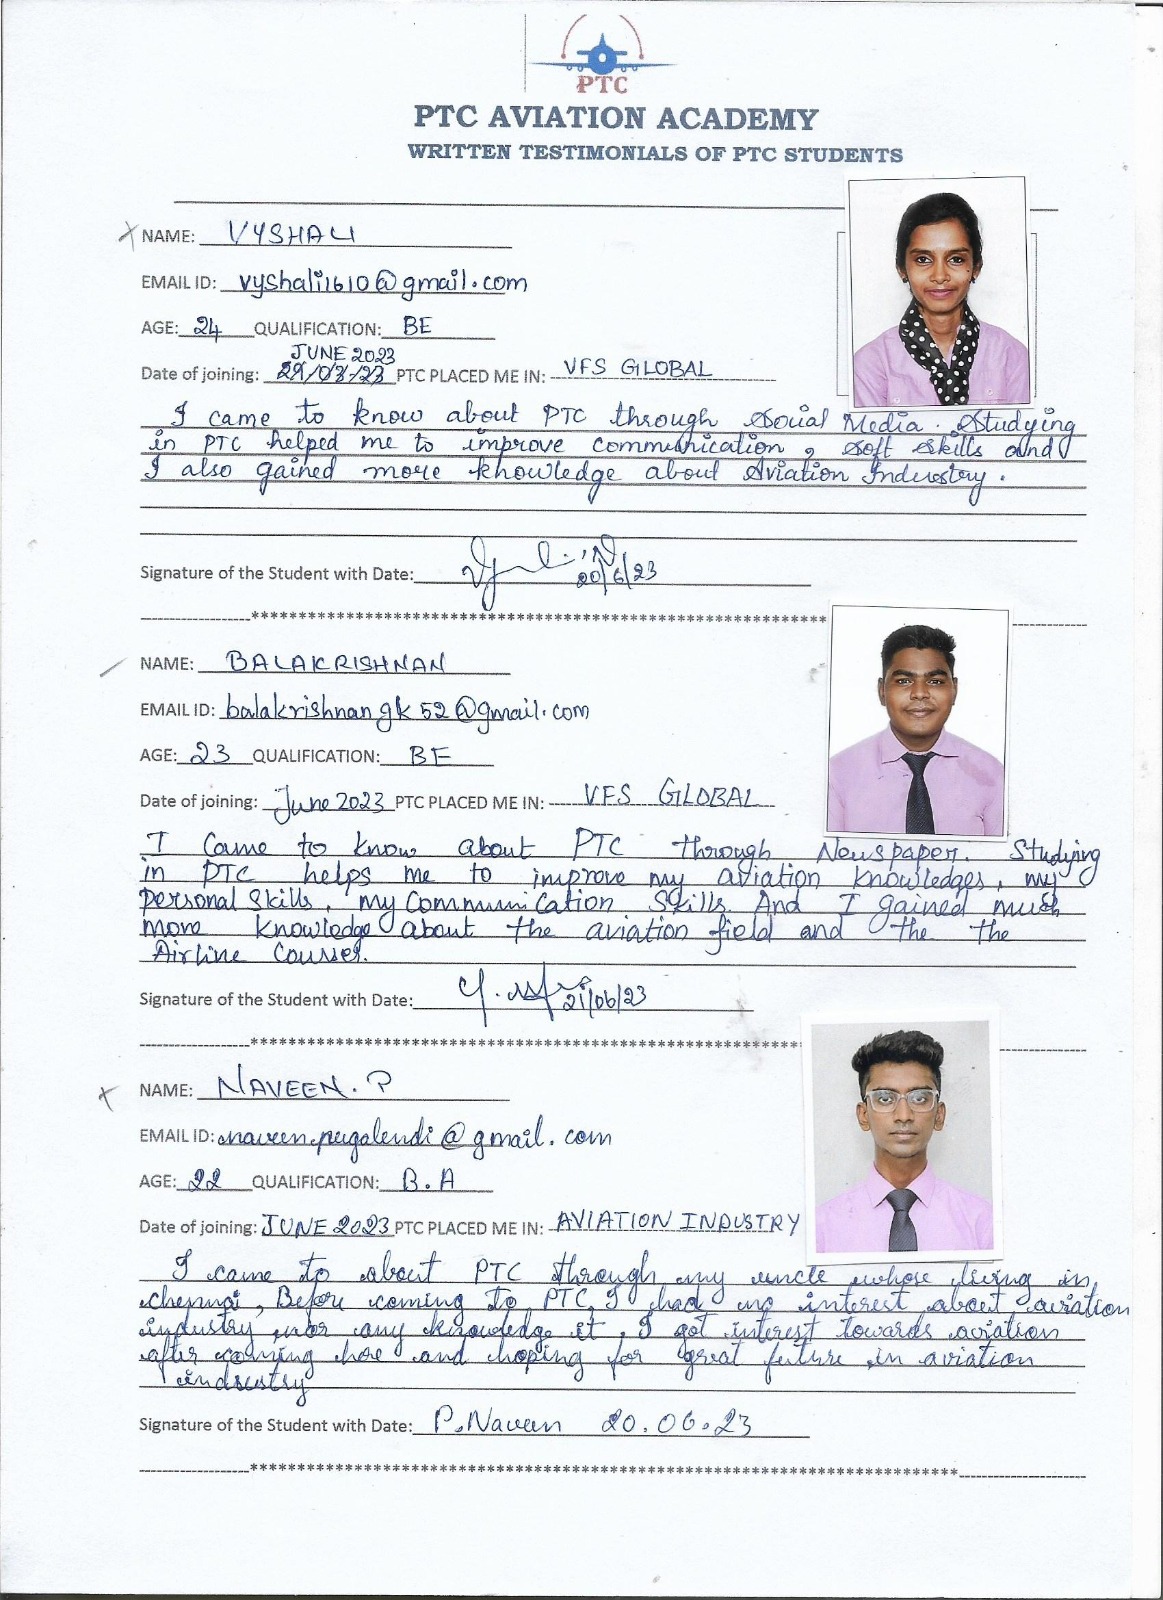 PTC
PTC AVIATION ACADEMY
WRITTEN TESTIMONIALS OF PTC STUDENTS
NAME: VYSHALI
EMAIL ID: vyshali1610@gmail.com
AGE: 24 QUALIFICATION: BE
JUNE 2023
Date of joining: 29/03/23 PTC PLACED ME IN: VFS GLOBAL
I came to know about PTC through Social Media. Studying
in PTC helped me to improve communication, soft skills and
I also gained more knowledge about Aviation Industry.
Signature of the Student with Date: 20/6/23
********************************************************************
NAME: BALAKRISHNAN
EMAIL ID: balakrishnangk52@gmail.com
AGE: 23 QUALIFICATION: BE
Date of joining: June 2023 PTC PLACED ME IN: VFS GLOBAL
I Came to know about PTC through Newspaper. Studying
in PTC helps me to improve my aviation knowledges, my
personal skills, my Communication Skills. And I gained much
more knowledge about the aviation field and the the
Airline Courses.
Signature of the Student with Date: 21/06/23
********************************************************************
NAME: NAVEEN. P
EMAIL ID: naveen.pugalendi@gmail.com
AGE: 22 QUALIFICATION: B.A
Date of joining: JUNE 2023 PTC PLACED ME IN: AVIATION INDUSTRY
I came to about PTC through my uncle whose living in
chennai, Before coming to PTC, I had no interest about aviation
industry nor any knowledge it, I got interest towards aviation
after coming here and hoping for great future in aviation
industry
Signature of the Student with Date: P.Naveen 20.06.23
********************************************************************